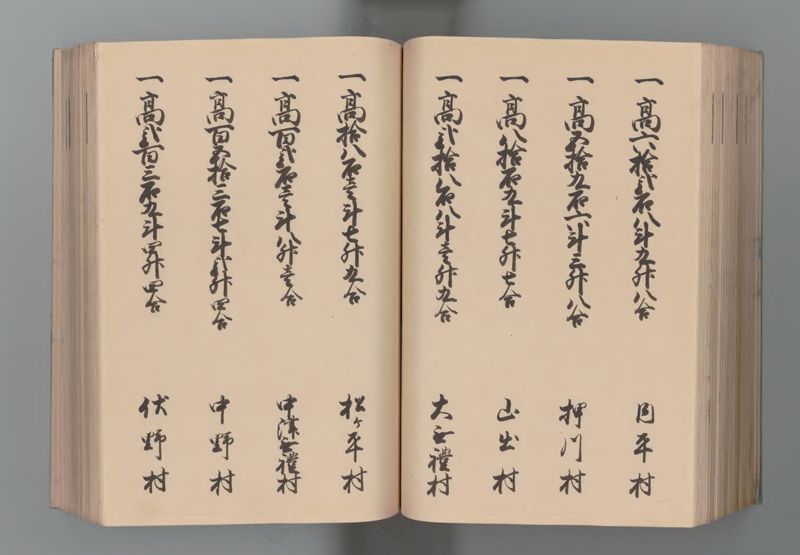 一高六拾弐石八斗九升八合 月平村
一高五拾九石六斗三升八合 押川村
一高八拾石九斗七升七合 山出村
一高弐拾八石八斗壱升九合 大無禮村
一高拾八石壱斗七升九合 松ヶ平村
一高百弐石壱斗八升壱合 中津無禮村
一高百五拾三石七斗弐升四合 中野村
一高弐百三石九斗四升四合 伏野村